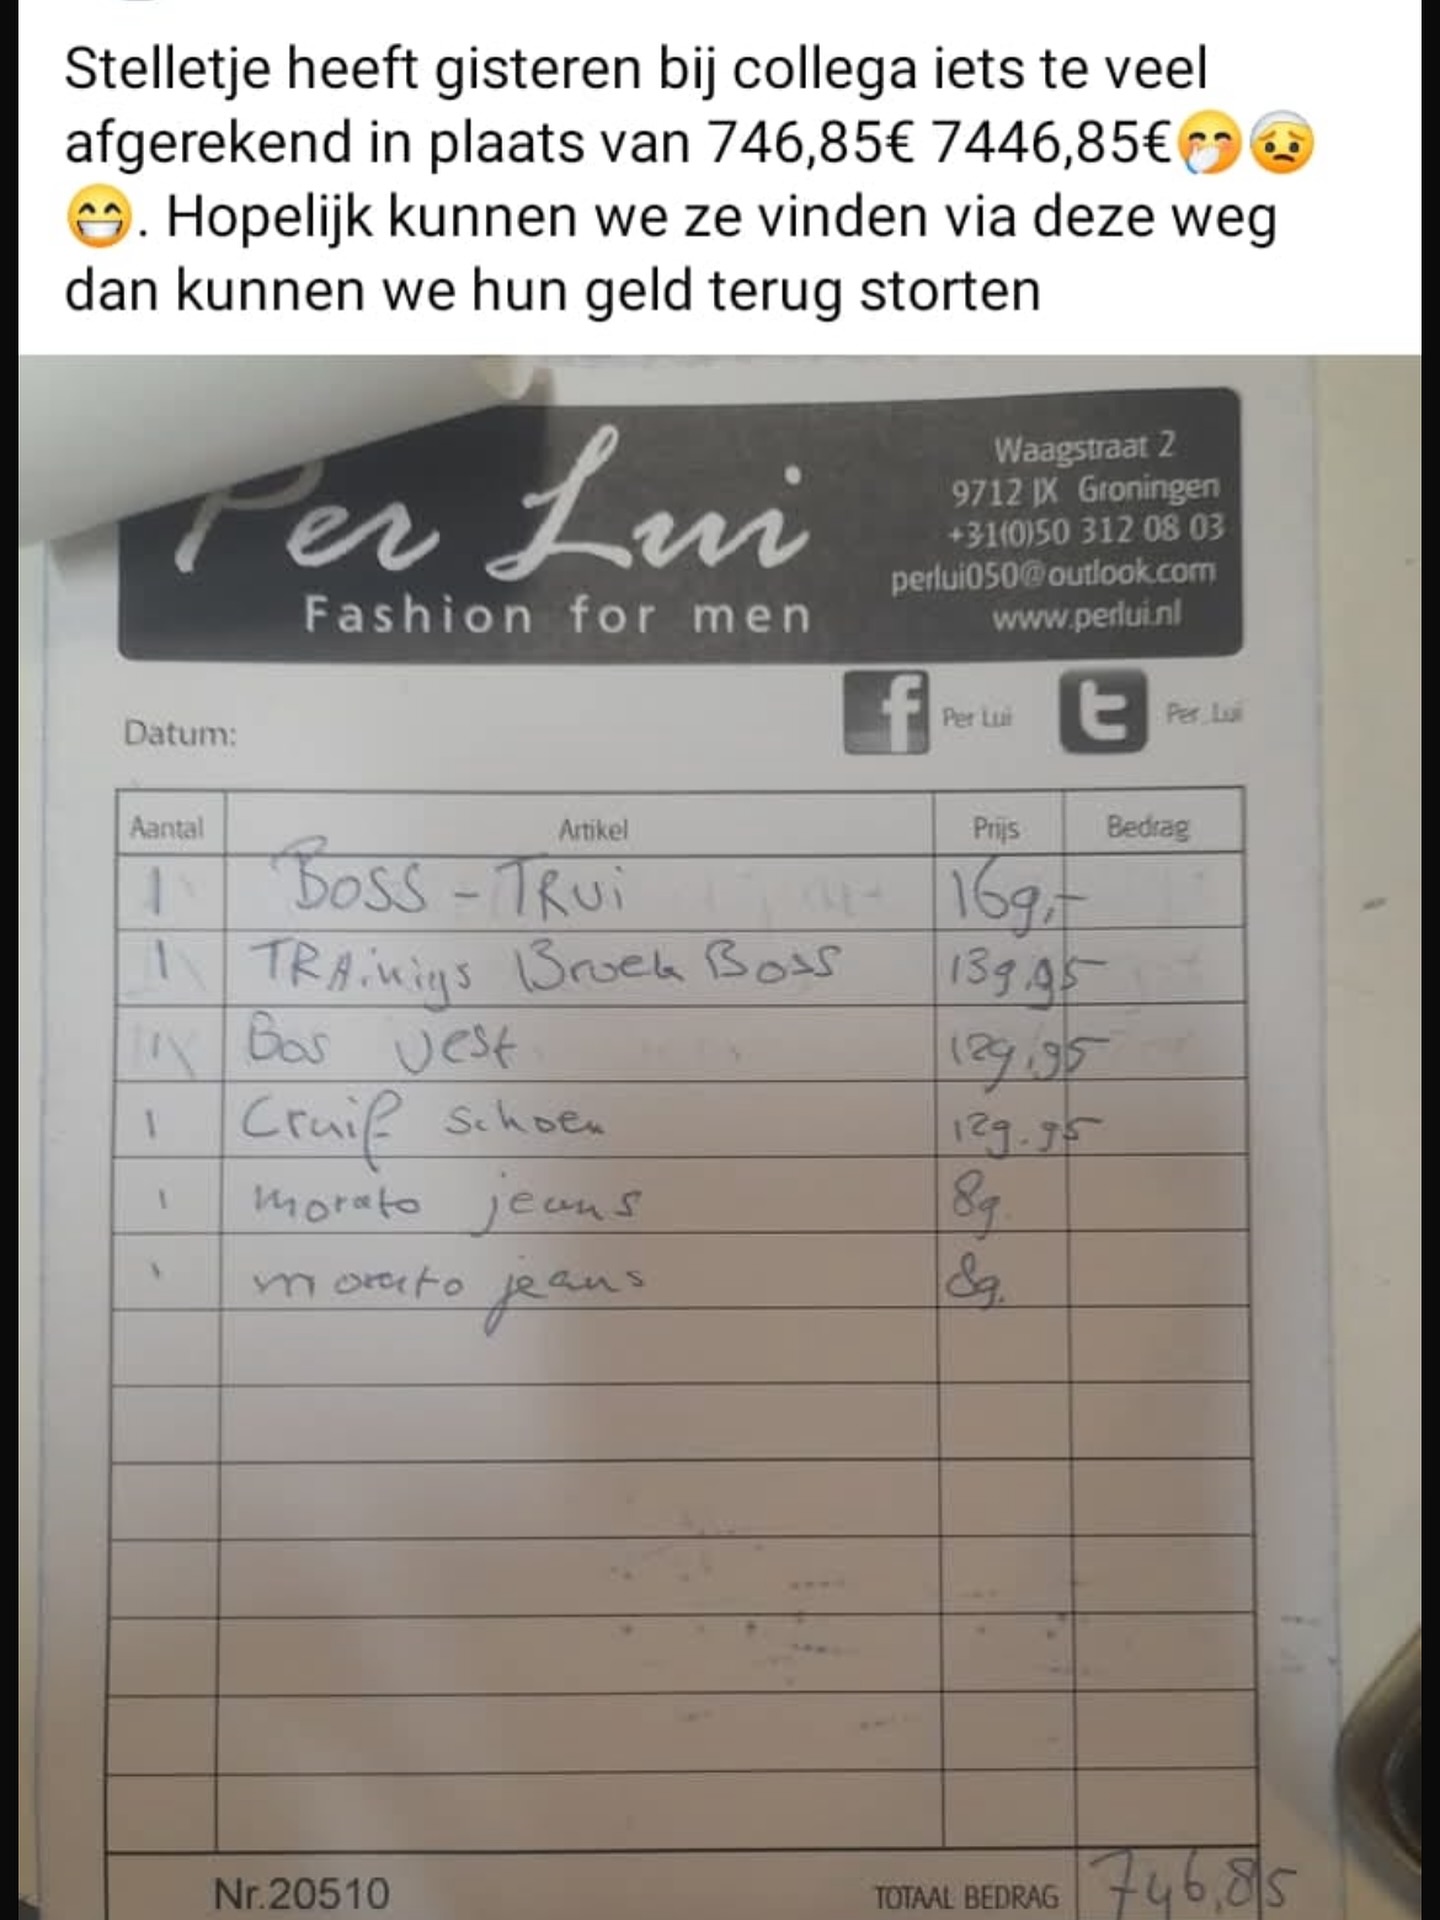 Stelletje heeft gisteren bij collega iets te veel
afgerekend in plaats van 746,85€ 7446,85€🤭🤕
😁. Hopelijk kunnen we ze vinden via deze weg
dan kunnen we hun geld terug storten
Per Lui
Fashion for men
Waagstraat 2
9712 JX Groningen
+31(0)50 312 08 03
perlui050@outlook.com
www.perlui.nl
Datum:
f Per Lui t Per_Lui
Aantal Artikel Prijs Bedrag
1 BOSS - TRUi 169,-
1 TRAinigs Broek Boss 139,95
1 Bos vest 129,95
1 Cruif schoen 129.95
1 morato jeans 89.
1 morato jeans 89.
Nr.20510 TOTAAL BEDRAG 746,85